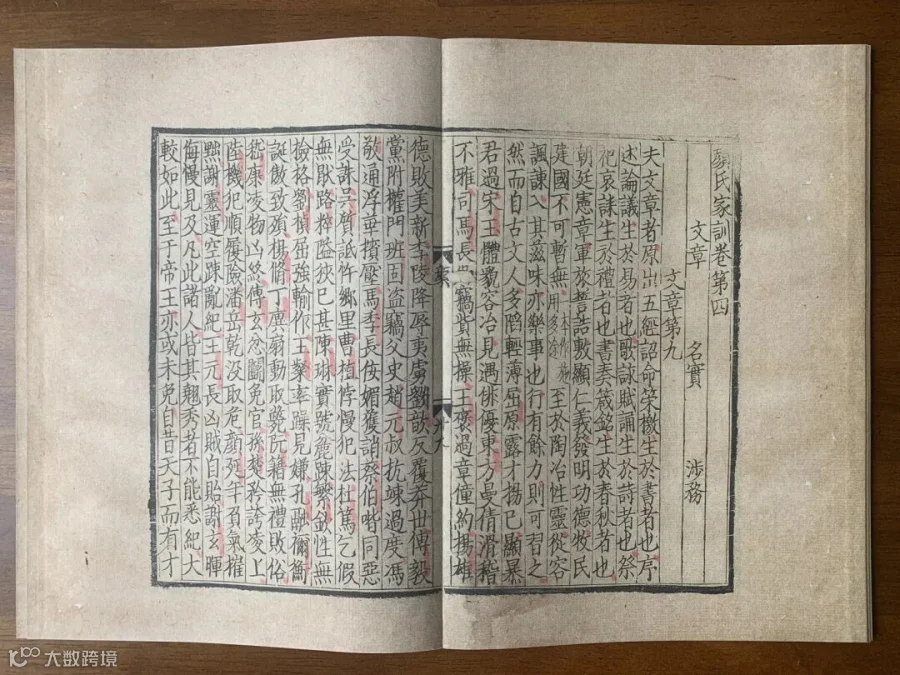 顔氏家訓卷第四
文章 名實 涉務
文章第九
夫文章者原出五經詔命策檄生於書者也序
述論議生於易者也歌詠賦頌生於詩者也祭
祀哀誄生於禮者也書奏箴銘生於春秋者也
朝廷憲章軍旅誓誥敷顯仁義發明功德牧民
建國不可暫無一本作施用多途至於陶冶性靈從容
諷諫入其滋味亦樂事也行有餘力則可習之
然而自古文人多陷輕薄屈原露才揚己顯暴
君過宋玉體貌容冶見遇俳優東方曼倩滑稽
不雅司馬長卿竊貲無操王襃過章僮約揚雄
德敗美新李陵降辱夷虜劉歆反覆莽世傅毅
黨附權門班固盜竊父史趙元叔抗竦過度馮
敬通浮華擯壓馬季長佞媚獲誚蔡伯喈同惡
受誅吳質詆忤鄉里曹植悖慢犯法杜篤乞假
無猒路粹隘狹已甚陳琳實號麄踈繁欽性無
檢格劉楨屈強輸作王粲率躁見嫌孔融禰衡
誕傲致殞楊脩丁廙扇動取斃阮籍無禮敗俗
嵇康凌物凶終傅玄忿鬬免官孫楚矜誇凌上
陸機犯順履險潘岳乾没取危顔延年負氣摧
黜謝靈運空踈亂紀王元長凶賊自貽謝玄暉
侮慢見及凡此諸人皆其翹秀者不能悉紀大
較如此至于帝王亦或未免自昔天子而有才
大数跨境